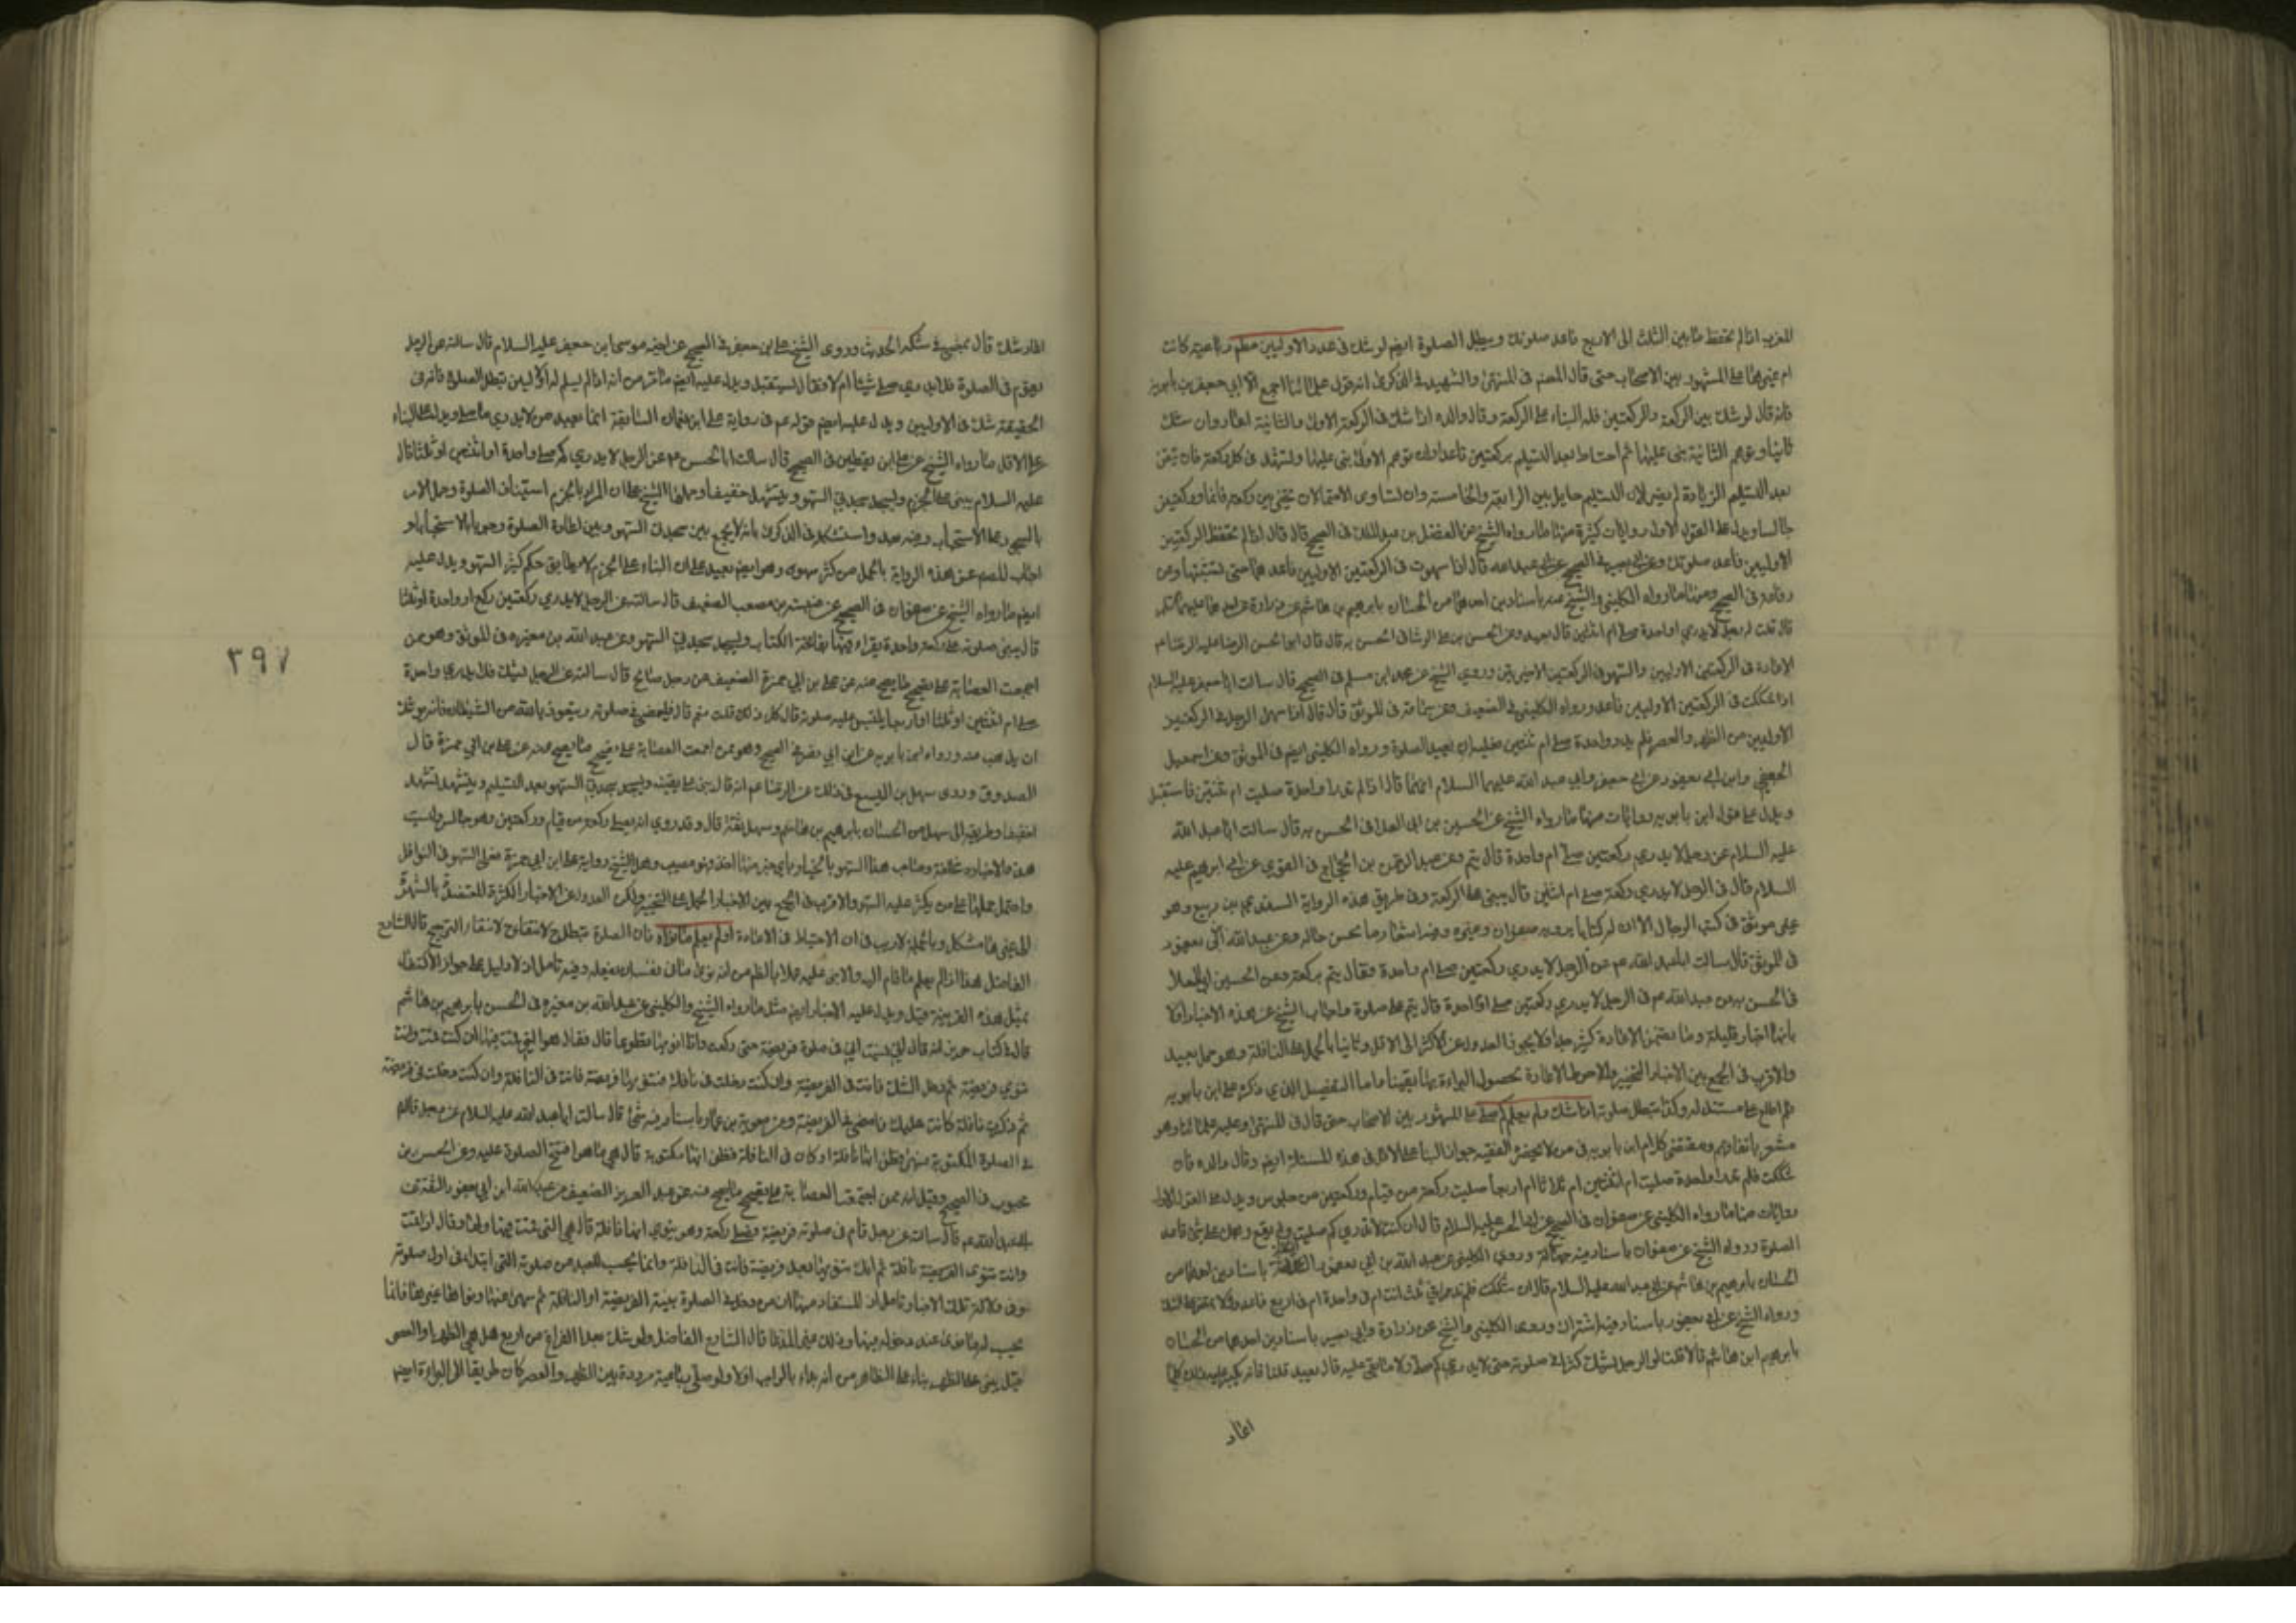 المغرب اذا لم تحفظ ما بين الثلث الى الاربع فاعد صلوتك ويبطل الصلوة ايضا لو شك فى عدد الاوليين مطلقا رباعية كانت
ام غيرها على المشهور بين الاصحاب حتى قال المصنف فى المنتهى والشهيد فى الذكرى انه قول علمائنا اجمع الا ابى جعفر بن بابويه
فانه قال لو شك بين الركعة والركعتين فله البناء على الركعة وقال والده اذا شك فى الركعة الاولى والثانية اعاد وان شك
ثانيا وتوهم الثانية بنى عليها ثم احتاط بعد التسليم بركعتين قاعدا وان توهم الاولى بنى عليها وتشهد فى كل ركعة فان تيقن
بعد التسليم الزيادة لم يضر لان التسليم حايل بين الرابعة والخامسة وان تساوى الاحتمالان تخير بين ركعة قائما وركعتين
جالسا ويدل على القول الاول روايات كثيرة منها ما رواه الشيخ عن الفضل بن عبد الملك فى الصحيح قال قال اذا لم تحفظ الركعتين
الاوليين فاعد صلوتك وعن ابى بصير فى الصحيح عن ابى عبد الله قال اذا سهوت فى الركعتين الاوليين فاعدهما حتى تثبتهما وعن
رفاعة فى الصحيح ومنها ما رواه الكلينى والشيخ عنه باسنادين احدهما من الحسان بابرهيم بن هاشم عن زرارة عن احدهما عليهما السلام
قال قلت له رجل لا يدرى اواحدة صلى ام اثنتين قال يعيد وعن الحسن بن على الوشا فى الحسن به قال قال ابو الحسن الرضا عليه السلام
الاعادة فى الركعتين الاوليين والسهو فى الركعتين الاخيرتين وروى الشيخ عن محمد ابن مسلم فى الصحيح قال سالت ابا جعفر عليه السلام
اذا شككت فى الركعتين الاوليين فاعد ورواه الكلينى فى الضعيف وعن سماعة فى الموثق قال قال اذا سهى الرجل فى الركعتين
الاوليين من الظهر والعصر فلم يدر واحدة صلى ام ثنتين فعليه ان يعيد الصلوة ورواه الكلينى ايضا فى الموثق وعن اسمعيل
الجعفى وابن ابى يعفور عن ابى جعفر وابى عبد الله عليهما السلام انهما قالا اذا لم تدر اواحدة صليت ام ثنتين فاستقبل
ويدل على قول ابن بابويه روايات منها ما رواه الشيخ عن الحسين بن ابى العلا فى الحسن به قال سالت ابا عبد الله
عليه السلام عن رجل لا يدرى ركعتين صلى ام واحدة قال يتم وعن عبد الرحمن بن الحجاج فى القوى عن ابى ابرهيم عليه
السلام قال فى الرجل لا يدرى ركعة صلى ام اثنتين قال يبنى على الركعة وفى طريق هذه الرواية السندى بن ربيع وهو
غير موثق فى كتب الرجال الا ان له كتابا يرويه صفوان وغيره وفيه اشعار ما بحسن حاله وعن عبد الله ابن ابى يعفور
فى الموثق قال سالت ابا عبد الله عم عن الرجل لا يدرى ركعتين صلى ام واحدة فقال يتم بركعة وعن الحسين ابى العلا
فى الحسن به عن عبد الله عم فى الرجل لا يدرى ركعتين صلى او واحدة قال يتم على صلوة واجاب الشيخ عن هذه الاخبار اولا
بانها اخبار قليلة وما تضمن الاعادة كثير جدا فلا يجوز العدول عن الاكثر الى الاقل وثانيا بالحمل على النافلة وهو حمل بعيد
والاقرب فى الجمع بين الاخبار التخيير والاحوط الاعادة لحصول البراءة بها يقينا واما التفصيل الذى ذكره على ابن بابويه
فلم اطلع على مستند له وكذا تبطل صلوته اذا شك ولم يعلم كم صلى على المشهور بين الاصحاب حتى قال فى المنتهى وعليه علمائنا وهو
مشعر باتفاقهم ومقتضى كلام ابن بابويه فى من لا يحضره الفقيه جواز البنا على الاقل فى هذه المسئلة ايضا وقال والده فان
شككت فلم تدر اواحدة صليت ام اثنتين ام ثلاثا ام اربعا صليت ركعة من قيام وركعتين من جلوس ويدل على القول الاول
روايات منها ما رواه الكلينى عن صفوان فى الصحيح عن ابى الحسن عليه السلام قال ان كنت لا تدرى كم صليت ولم يقع وهمك على شئ فاعد
الصلوة ورواه الشيخ عن صفوان باسناد فيه جهالة وروى الكلينى عن عبد الله بن ابى يعفور باسنادين احدهما من
الحسان بابرهيم بن هاشم عن ابى عبد الله عليه السلام قال ان شككت فلم تدر افى ثلث انت ام فى واحدة ام فى اربع فاعد ولا تمض على الشك
ورواه الشيخ عن ابن ابى يعفور باسناد فيه اشتراك وروى الكلينى والشيخ عن زرارة وابى بصير باسنادين احدهما من الحسان
بابرهيم ابن هاشم قالا قلنا له الرجل يشك كثيرا فى صلوته حتى لا يدرى كم صلى ولا ما بقى عليه قال يعيد قلنا فانه يكثر عليه ذلك كلما
اعاد
اعاد شك قال يمضى فى شكه الحديث وروى الشيخ على بن جعفر فى الصحيح عن اخيه موسى ابن جعفر عليه السلام قال سالته عن الرجل
يقوم فى الصلوة فلا يدرى صلى شيئا ام لا فقال يستقبل ويدل عليه ايضا ما مر من انه اذا لم يسلم له الاوليين تبطل الصلوة فانه فى
الحقيقة شك فى الاوليين ويدل عليه ايضا قوله عم فى رواية على ابن النعمان السابقة انما يعيد من لا يدرى ما صلى ويدل على البناء
على الاقل ما رواه الشيخ عن على ابن يقطين فى الصحيح قال سالت ابا الحسن عن الرجل لا يدرى كم صلى واحدة او اثنتين او ثلثا قال
عليه السلام يبنى على الجزم ويسجد سجدتى السهو ويتشهد خفيفا وحملها الشيخ على ان المراد بالجزم استيناف الصلوة وحمل الامر
بالسجود على الاستحباب وفيه بعد واستشكله فى الذكرى بانه لا يجمع بين سجدتى السهو وبين اعادة الصلوة وجوبا ولا استحبابا و
اجاب المصنف عن هذه الرواية بالحمل من كثر سهوه وهو ايضا بعيد على ان البناء على الجزم لا يطابق حكم كثير السهو ويدل عليه
ايضا ما رواه الشيخ عن صفوان فى الصحيح عن عنبسة بن مصعب الضعيف قال سالته عن الرجل لا يدرى ركعتين ركع او واحدة او ثلثا
قال يبنى صلوته على ركعة واحدة يقراء فيها بفاتحة الكتاب ويسجد سجدتى السهو وعن عبد الله بن مغيرة فى الموثق وهو ممن
اجمعت العصابة على تصحيح ما يصح عنه عن على بن ابى حمزة الضعيف عن رجل صالح قال سالته عن الرجل يشك فلا يدرى واحدة
صلى ام اثنتين او ثلثا او اربعا يلتبس عليه صلوته قال كل ذلك قلت نعم قال فليمض فى صلوته ويتعوذ بالله من الشيطان فانه يوشك
ان يذهب عنه ورواه ابن بابويه عن ابن ابى عمير فى الصحيح وهو ممن اجمعت العصابة على تصحيح ما يصح عنه عن على بن ابى حمزة قال
الصدوق وروى سهل بن اليسع فى ذلك عن الرضا عم انه قال يبنى على يقينه ويسجد سجدتى السهو بعد التسليم ويتشهد تشهدا
خفيفا وطريقه الى سهل من الحسان بابرهيم بن هاشم وسهل ثقة قال وقد روى انه يصلى ركعة من قيام وركعتين وهو جالس وليست
هذه الاخبار مختلفة وصاحب هذا السهو بالخيار باى خبر منها اخذ فهو مصيب وحمل الشيخ رواية على ابن ابى حمزة على السهو فى النوافل
واحتمل حملها على من يكثر عليه السهو والاقرب فى الجمع بين الاخبار الحمل على التخيير ولكن العدول عن الاخبار الكثيرة المعتضدة بالشهرة
الى غيرها مشكل وبالجملة لا ريب فى ان الاحتياط فى الاعادة او لم يعلم ما نواه فان الصلوة تبطل ح لانتفاء الترجيح قال الشارح
الفاضل هذا اذا لم يعلم ما قام اليه والا بنى عليه عملا بالظاهر من انه نوى ما فى نفسه ان يفعله وفيه تامل اذ لا دليل على جواز الاكتفاء
بمثل هذه القرينة قيل ويدل عليه الاخبار ايضا مثل ما رواه الشيخ والكلينى عن عبد الله بن مغيرة فى الحسن بابرهيم بن هاشم
قال فى كتاب حريز انه قال انى نسيت انى فى صلوة فريضة حتى ركعت وانا انويها تطوعا قال فقال هو التى قمت فيها ان كنت قمت وانت
تنوى فريضة ثم دخل الشك فانت فى الفريضة وان كنت دخلت فى نافلة فنويتها فريضة فانت فى النافلة وان كنت دخلت فى فريضة
ثم ذكرت نافلة كانت عليك فامض فى الفريضة وعن معوية بن عمار باسناد فيه شئ قال سالت ابا عبد الله عليه السلام عن رجل قام
فى الصلوة المكتوبة فسهى فظن انها نافلة او كان فى النافلة فظن انها مكتوبة قال هى ما افتتح الصلوة عليه وعن الحسن بن
محبوب فى الصحيح وقيل انه ممن اجتمعت العصابة على تصحيح ما يصح عنه عن عبد العزيز الضعيف عن عبد الله ابن ابى يعفور الثقة عن
ابى عبد الله عم قال سالته عن رجل قام فى صلوته فريضة فصلى ركعة وهو ينوى انها نافلة قال هى التى قمت فيها ولها وقال اذا قمت
وانت تنوى الفريضة نافلة ثم انك تنويها بعد فريضة فانت فى النافلة وانما يحسب للعبد من صلوته التى ابتدا فى اول صلوته
وفى دلالة تلك الاخبار تامل اذ المستفاد منها ان من دخل فى الصلوة بنية الفريضة او النافلة ثم سهى عنها ونواها غيرها فانما
يحسب له ما نوى عند دخوله فيها وذلك غير المدعا قال الشارح الفاضل ولو شك بعد الفراغ من اربع هل هى الظهر او العصر
قيل يبنى على الظهر بناء على الظاهر من انه بداء بالواجب اولا ولو صلى رباعية مرددة بين الظهر والعصر كان طريقا الى البراءة ايضا
٣٩٧